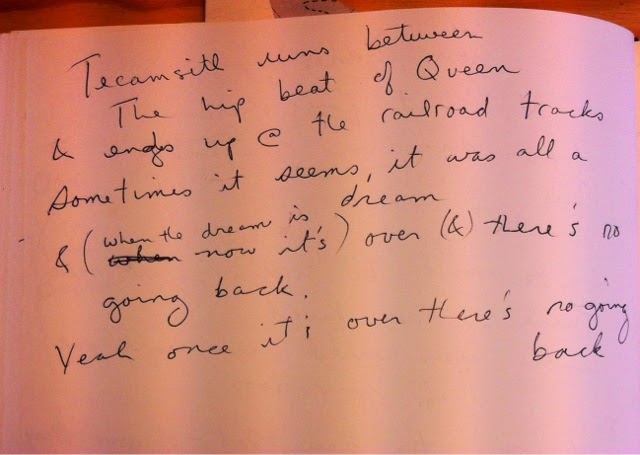 Tecamsitl runs between
The hip beat of Queen
& ends up @ the railroad tracks
Sometimes it seems, it was all a
dream
& (when the dream is
when now it's) over (&) there's no
going back.
Yeah once it's over there's no going
back